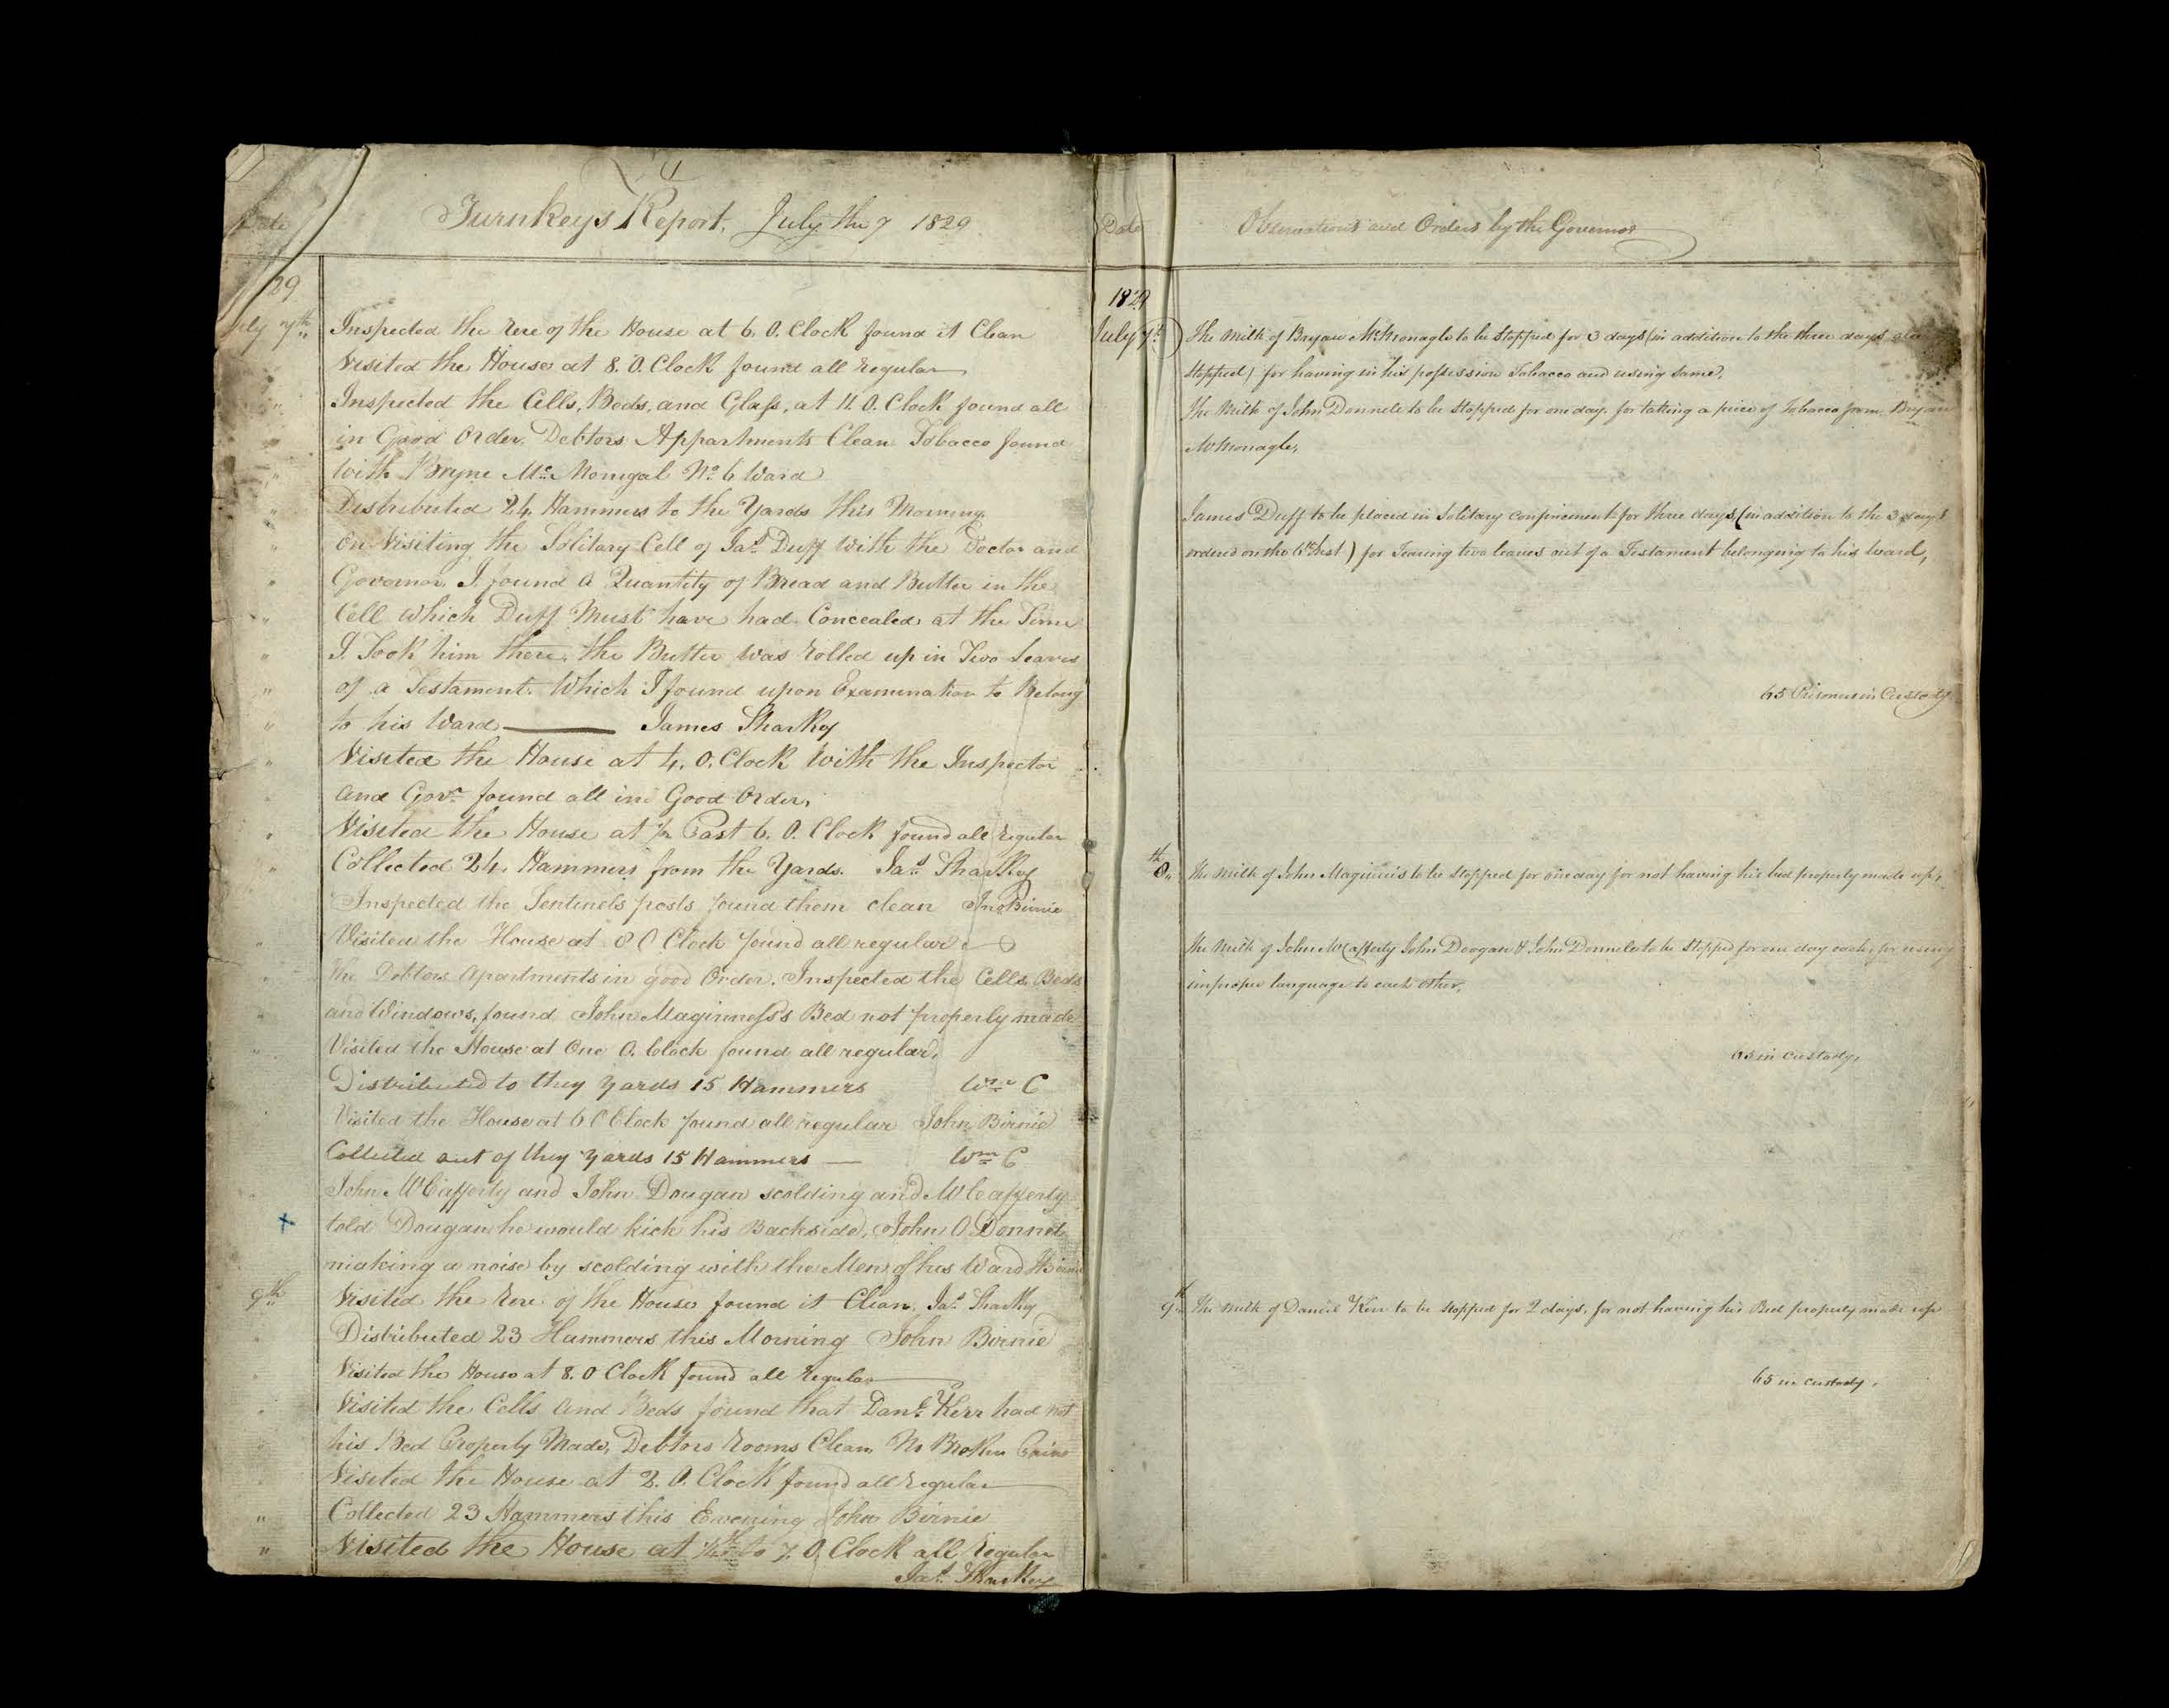 Date
Turnkeys Report, July the 7 1829
29
July 7th
Inspected the rere of the House at 6. O. Clock found it Clean
Visited the House at 8. O. Clock found all regular
Inspected the Cells, Beds, and Glass, at 11. O. Clock found all
in Good Order, Debtors Appartments Clean Tobacco found
with Bryne Mc Monigal No. 6 Ward
Distributed 24 Hammers to the Yards this Morning
On Visiting the Solitary Cell of Jas. Duff With the Doctor and
Governor I found a Quantity of Bread and Butter in the
Cell which Duff Must have had Concealed at the Time
I Took him there, the Butter was rolled up in Two Leaves
of a Testament. Which I found upon Examination to Belong
to his Ward James Sharkey
Visited the House at 4. O. Clock With the Inspector
and Govr. found all in Good Order,
Visited the House at ½ Past 6. O. Clock found all regular
Collected 24 Hammers from the Yards. Jas. Sharkey
Inspected the Sentinels posts found them clean Jno Birnie
Visited the House at 8 O Clock found all regular
the Debtors Apartments in good Order. Inspected the Cells, Beds
and Windows, found John Maginness's Bed not properly made
Visited the House at One O. Clock found all regular,
Distributed to they yards 15 Hammers Wm C
Visited the House at 6 O Clock found all regular John Birnie
Collected out of they yards 15 Hammers Wm C
John McCafferty and John Dougan scolding and McCafferty
told Dougan he would kick his Backside, John O Donnel
making a noise by scolding with the Men of his Ward JBirnie
9th
Visited the rere of the House found it Clean. Jas. Sharkey
Distributed 23 Hammers this Morning John Birnie
Visited the House at 8. O Clock found all regular
Visited the Cells and Beds found that Danl. Kerr had not
his Bed Properly Made, Debtors rooms Clean No Broken Pains
Visited the House at 2. O. Clock found all regular
Collected 23 Hammers this Evening John Birnie
Visited the House at to 7. O. Clock all Regular
Jas. Sharkey
Date
Observations and Orders by the Governor
1829
July 7th
The Milk of Bryan McMonagle to be Stopped for 3 days (in addition to the three days
stopped) for having in his possession Tobacco and using same,
The Milk of John Donnele to be stopped for one day. for taking a piece of Tobacco from Bryan
McMonagle,
James Duff to be placed in Solitary confinement for three days, (in addition to the 3 days
ordered on the 6th Inst.) for Tearing two leaves out of a Testament belonging to his ward,
65 Prisoners in Custody
8th
The Milk of John Maginnis to be stopped for one day for not having his bed properly made up,
The Milk of John McCafferty John Doogan & John Donnele to be Stopped for one day each, for using
improper language to each other,
65 in custody,
9th
The Milk of Daniel Kerr to be stopped for 2 days, for not having his Bed properly made up
65 in custody.